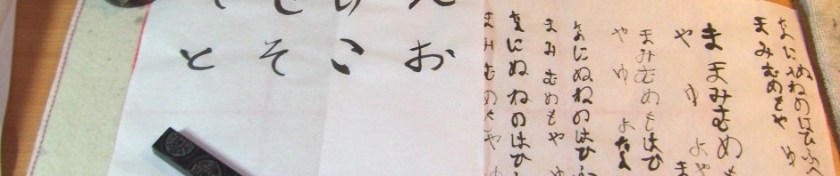 なにぬねのはひふへ
まみむめもや ゆ
ま まみむめも
や ゆ よ ま
まみむめもはひ
や ゆ よ
なにぬねのはひふ
まみむめもや ゆ
なにぬねのはひ
まみむめもや ゆ
え お
け こ
せ そ
て と